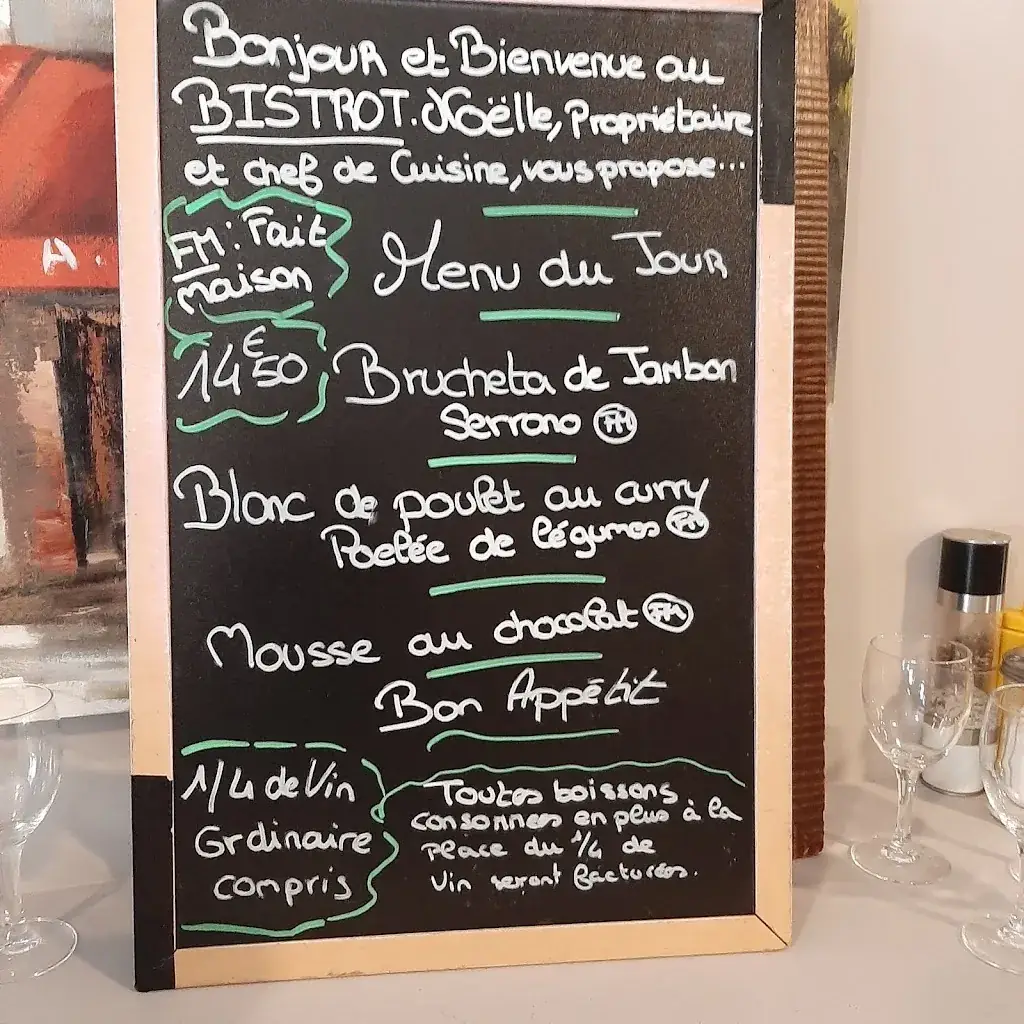 Bonjour et Bienvenue au
BISTROT. Noëlle, Propriétaire
et chef de Cuisine, vous propose...
FM: Fait
maison
Menu du Jour
14€50
Brucheta de Jambon
Serrano FM
Blanc de poulet au curry
Poelée de légumes FM
Mousse au chocolat FM
Bon Appétit
1/4 de Vin
Ordinaire
compris
Toutes boissons
consonnees en plus à la
place du 1/4 de
Vin seront facturées.
A.